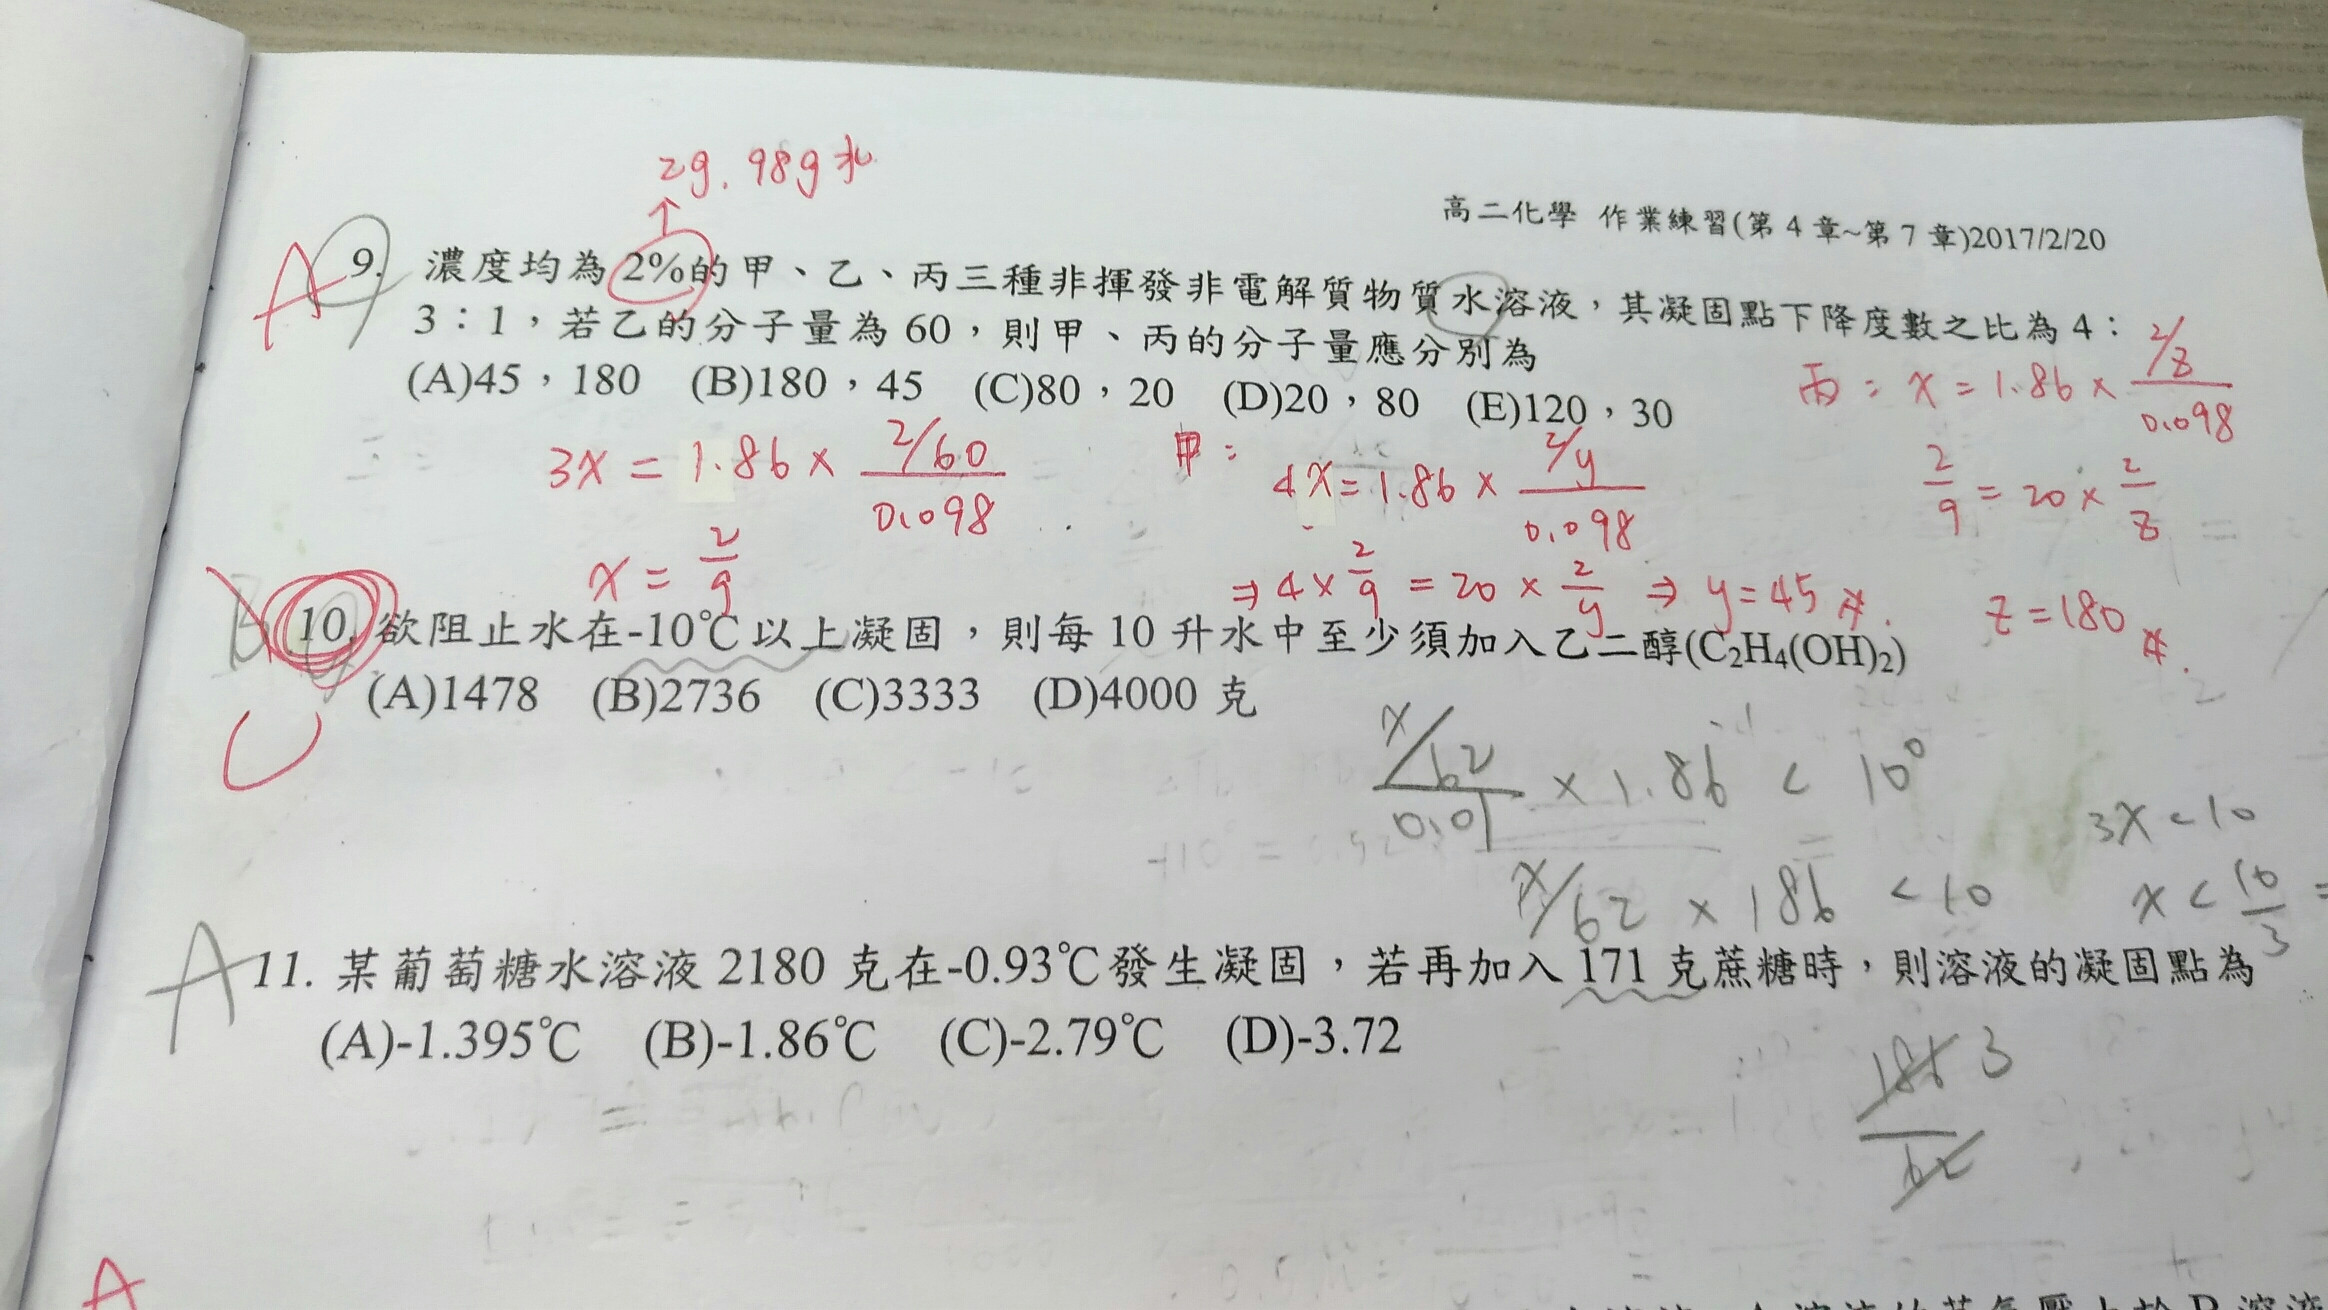 2g. 98g水
高二化學 作業練習(第4章~第7章)2017/2/20
A 9. 濃度均為2%的甲、乙、丙三種非揮發非電解質物質水溶液,其凝固點下降度數之比為4:
3:1,若乙的分子量為60,則甲、丙的分子量應分別為
(A)45,180 (B)180,45 (C)80,20 (D)20,80 (E)120,30
丙: x = 1.86 × 2/z / 0.098
3x = 1.86 × 2/60 / 0.098
甲: 4x = 1.86 × 2/y / 0.098
2/9 = 20 × 2/z
x = 2/9
⇒ 4 × 2/9 = 20 × 2/y ⇒ y = 45 #.
z = 180 #.
10. 欲阻止水在-10℃以上凝固,則每10升水中至少須加入乙二醇(C₂H₄(OH)₂)
(A)1478 (B)2736 (C)3333 (D)4000 克
C
x/62 / 0.01 × 1.86 < 10°
3x < 10
x/62 × 186 < 10
x < 10/3 =
A 11. 某葡萄糖水溶液2180克在-0.93℃發生凝固,若再加入171克蔗糖時,則溶液的凝固點為
(A)-1.395℃ (B)-1.86℃ (C)-2.79℃ (D)-3.72
186 3
62
A